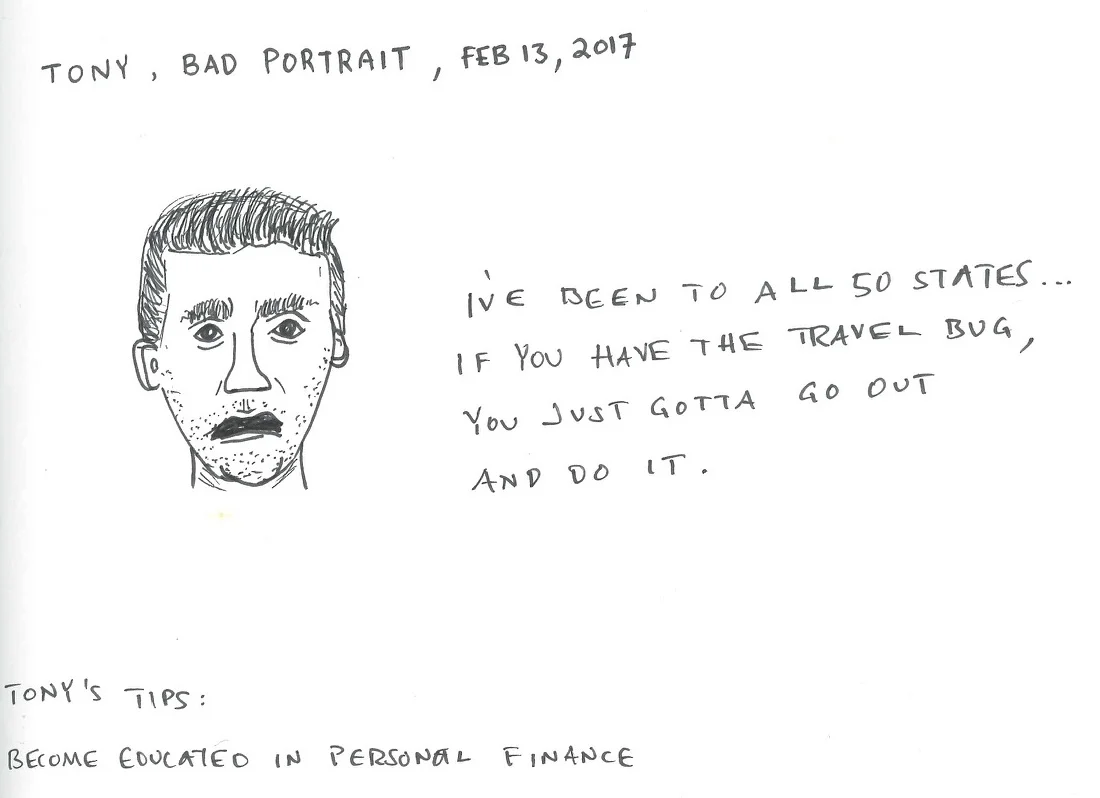 TONY, BAD PORTRAIT, FEB 13, 2017
I'VE BEEN TO ALL 50 STATES...
IF YOU HAVE THE TRAVEL BUG,
YOU JUST GOTTA GO OUT
AND DO IT.
TONY'S TIPS:
BECOME EDUCATED IN PERSONAL FINANCE